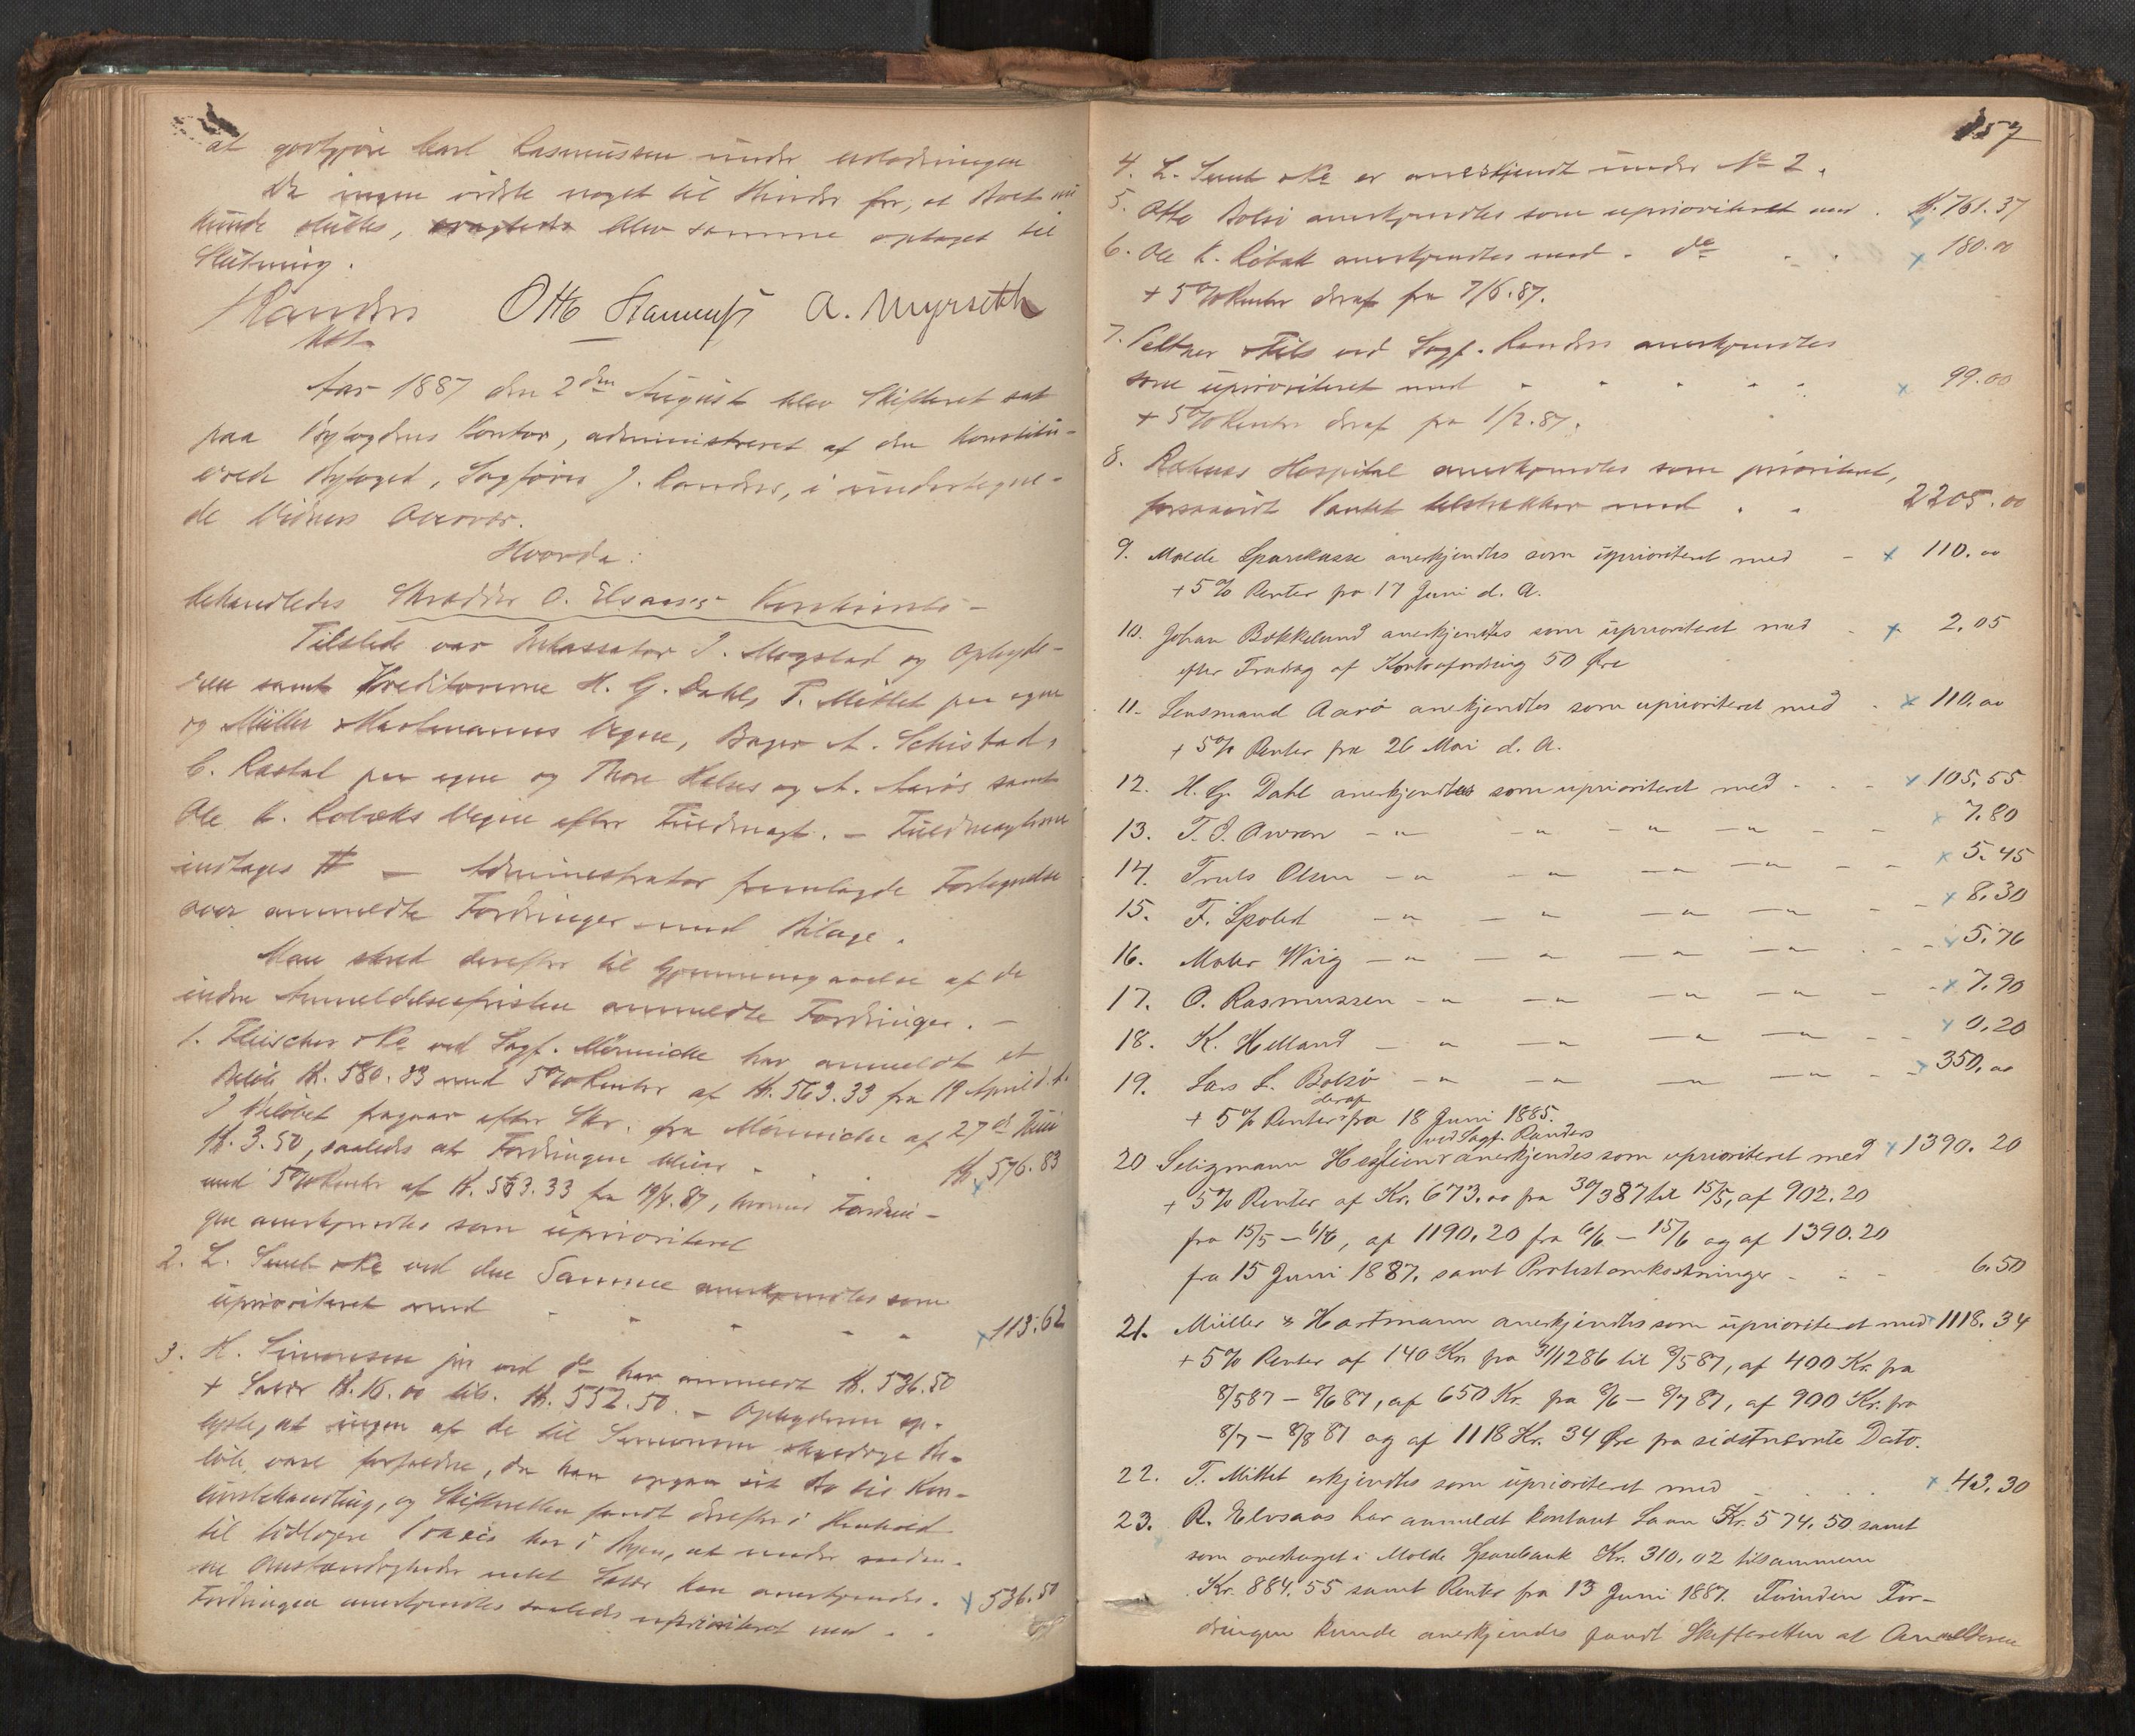 at godtgjöre Carl Rasmussen under udlodningen
Da ingen vidste noget til Hinder for, at Boet nu
kunde sluttes, blev samme optaget til
Slutning.
Randers Otto A. Myrseth
Kst.
Aar 1887 den 2den August blev Skifteret sat
paa Byfogdens Kontor, administreret af den konstitu-
erede Byfoged, Sagförer J. Randers, i undertegne-
de Vidners Overvær.
Hvorda:
behandledes Skrædder O. Elsaas's Konkursbo -
Tilstede var Inkassator J. Mogstad og Opbyde-
ren samt Kreditorerne H. G. Dahl, T. Mittet paa egne
og Müller & Hartmanns Vegne, Bager A. Schistad,
C. Rastad paa egne og Thore Helsets og A. Aarös samt
Ole K. Röbæks Vegne efter Fuldmagt. - Fuldmagterne
indtages # - Administrator fremlagde Fortegnelse
over anmeldte Fordringer med Bilage.
Man skred derefter til Gjennemgaaelse af de
inden Anmeldelsesfristen anmeldte Fordringer. -
1. Fleischer & Co ved Sagf. Mönniche har anmeldt et
Belöb Kr. 580.33 med 5% Renter af Kr. 563.33 fra 19 April d. A.
I Belöbet fragaar efter Skr. fra Mönniche af 27de Juni
Kr. 3.50, saaledes at Fordringen bliver - . Kr. 576.83
med 5% Renter af Kr. 563.33 fra 19/4.87, hvormed Fordrin-
gen anerkjendtes som uprioriteret
2. L. Sundt & Co ved den Samme anerkjendtes som
uprioriteret med - - - - - 113.62
3. H. Simonsen jun ved do har anmeldt Kr. 536.50
+ Salær Kr. 16.00 tils. Kr. 552.50. - Opbyderen op-
lyste, at ingen af de til Simonsen skyldige Be-
löb vare forfaldne, da han opgav sit Bo til Kon-
kursbehandling, og Skifteretten fandt derefter i Henhold
til tidligere Praxis her i Byen, at under saadan-
ne Omstændigheder intet Salær kan anerkjendes.
Fordringen anerkjendtes saaledes uprioriteret med - - 536.50
157
4. L. Sundt & Co er anerkjendt under No 2.
5. Otto Bolsö anerkjendtes som uprioriteret med . Kr. 761.37
6. Ole K. Röbæk anerkjendtes med - do - - 180.00
+ 5% Renter deraf fra 7/6.87.
7. Peltzer & Fils ved Sagf. Randers anerkjendtes
som uprioriteret med - - - - - 99.00
+ 5% Renter deraf fra 1/2.87.
8. Reknes Hospital anerkjendtes som prioriteret,
forsaavidt Pantet tilstrækker med . - 2205.00
9. Molde Sparekasse anerkjendtes som uprioriteret med - 110.00
+ 5% Renter fra 17 Juni d. A.
10. Johan Bakkelund anerkjendtes som uprioriteret med - 2.05
efter Fradrag af Kontrafordring 50 Öre
11. Lensmand Aarö anerkjendtes som uprioriteret med - 110.00
+ 5% Renter fra 26 Mai d. A.
12. H. G. Dahl anerkjendtes som uprioriteret med - - - 105.55
13. T. J. Owren - " - " - " - " - - 7.80
14. Truls Olsen - " - " - " - " - - 5.45
15. F. - " - " - " - " - - 8.30
16. Maler Wiig - " - " - " - " - - 5.76
17. O. Rasmussen - " - " - " - " - - 7.90
18. K. Helland - " - " - " - " - - 0.20
19. Lars L. Bolsö - " - " - " - " - - 350.00
+ 5% Renter deraf fra 18 Juni 1885.
20 Seligmann Hesslein ved Sagf. Randers anerkjendes som uprioriteret med 1390.20
+ 5% Renter af Kr. 673.00 fra 30/3 87 til 15/5, af 902.20
fra 15/5 - 6/6, af 1190.20 fra 6/6 - 15/6 og af 1390.20
fra 15 Juni 1887, samt Protestomkostninger - - - 6.50
21. Müller & Hartmann anerkjendtes som uprioriteret med 1118.34
+ 5% Renter af 140 Kr. fra 31/12 86 til 8/5 87, af 400 Kr. fra
8/5 87 - 8/6 87, af 650 Kr. fra 8/6 - 8/7 87, af 900 Kr. fra
8/7 - 8/8 87 og af 1118 Kr. 34 Öre fra sidstnævnte Dato.
22. T. Mittet erkjendtes som uprioriteret med - . . . 43.30
23. R. Elvsaas har anmeldt kontant Laan Kr. 574.50 samt
som overtaget i Molde Sparebank Kr. 310.02 tilsammen
Kr. 884.55 samt Renter fra 13 Juni 1887. Forinden For-
dringen kunde anerkjendes fandt Skifteretten at Anmelderen